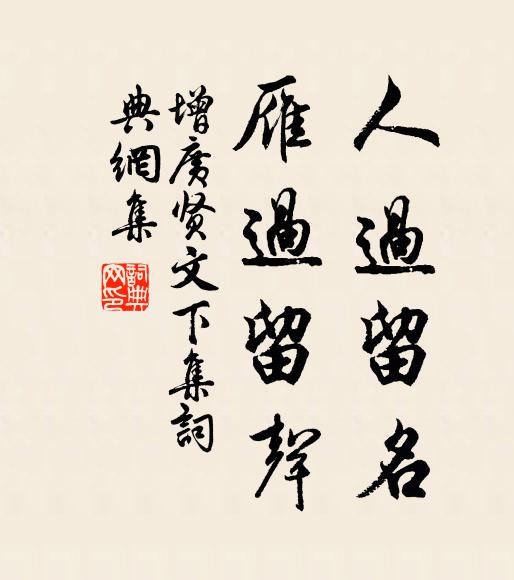 人過留名
雁過留聲
增廣贤文下集詞
典網集
詞典
网印